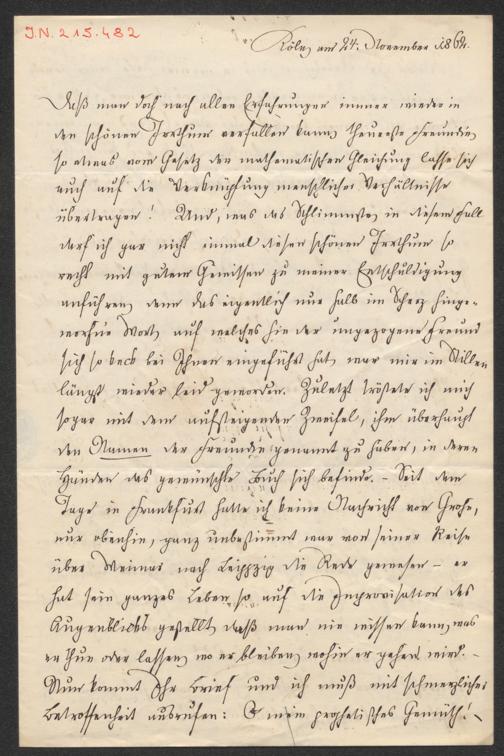 J.N. 215.482
Köln am 24. November 1862.
Daß man doch nach allen Erfahrungen immer wieder in
den schönen Irrthum verfallen kann, theuerste Freundin,
so etwas vom Gesetz der mathematischen Gleichung lasse sich
auch auf die Verknüpfung menschlicher Verhältnisse
übertragen! Und, was das Schlimmste, in diesem Fall
darf ich gar nicht einmal diesen schönen Irrthum so
recht mit gutem Gewissen zu meiner Entschuldigung
anführen, denn das eigentlich nur halb im Scherz hinge-
worfne Wort, auf welches hin der ungezogene Freund
sich so keck bei Ihnen eingeführt hat, war mir im Stillen
längst wieder leid geworden. Zuletzt tröstete ich mich
sogar mit dem aufsteigenden Zweifel, ihm überhaupt
den Namen der Freundin genannt zu haben, in deren
Händen das gewünschte Buch sich befinde. – Seit dem
Tage in Frankfurt hatte ich keine Nachricht von Grohe,
nur obenhin, ganz unbestimmt war von seiner Reise
über Weimar nach Leipzig die Rede gewesen – er
hat sein ganzes Leben so auf die Improvisation des
Augenblicks gestellt, daß man nie wissen kann, was
er thun oder lassen, wo er bleiben, wohin er gehen wird. –
Nun kommt Ihr Brief und ich muß mit schmerzlicher
Betroffenheit ausrufen: O mein prophetisches Gemüth! –